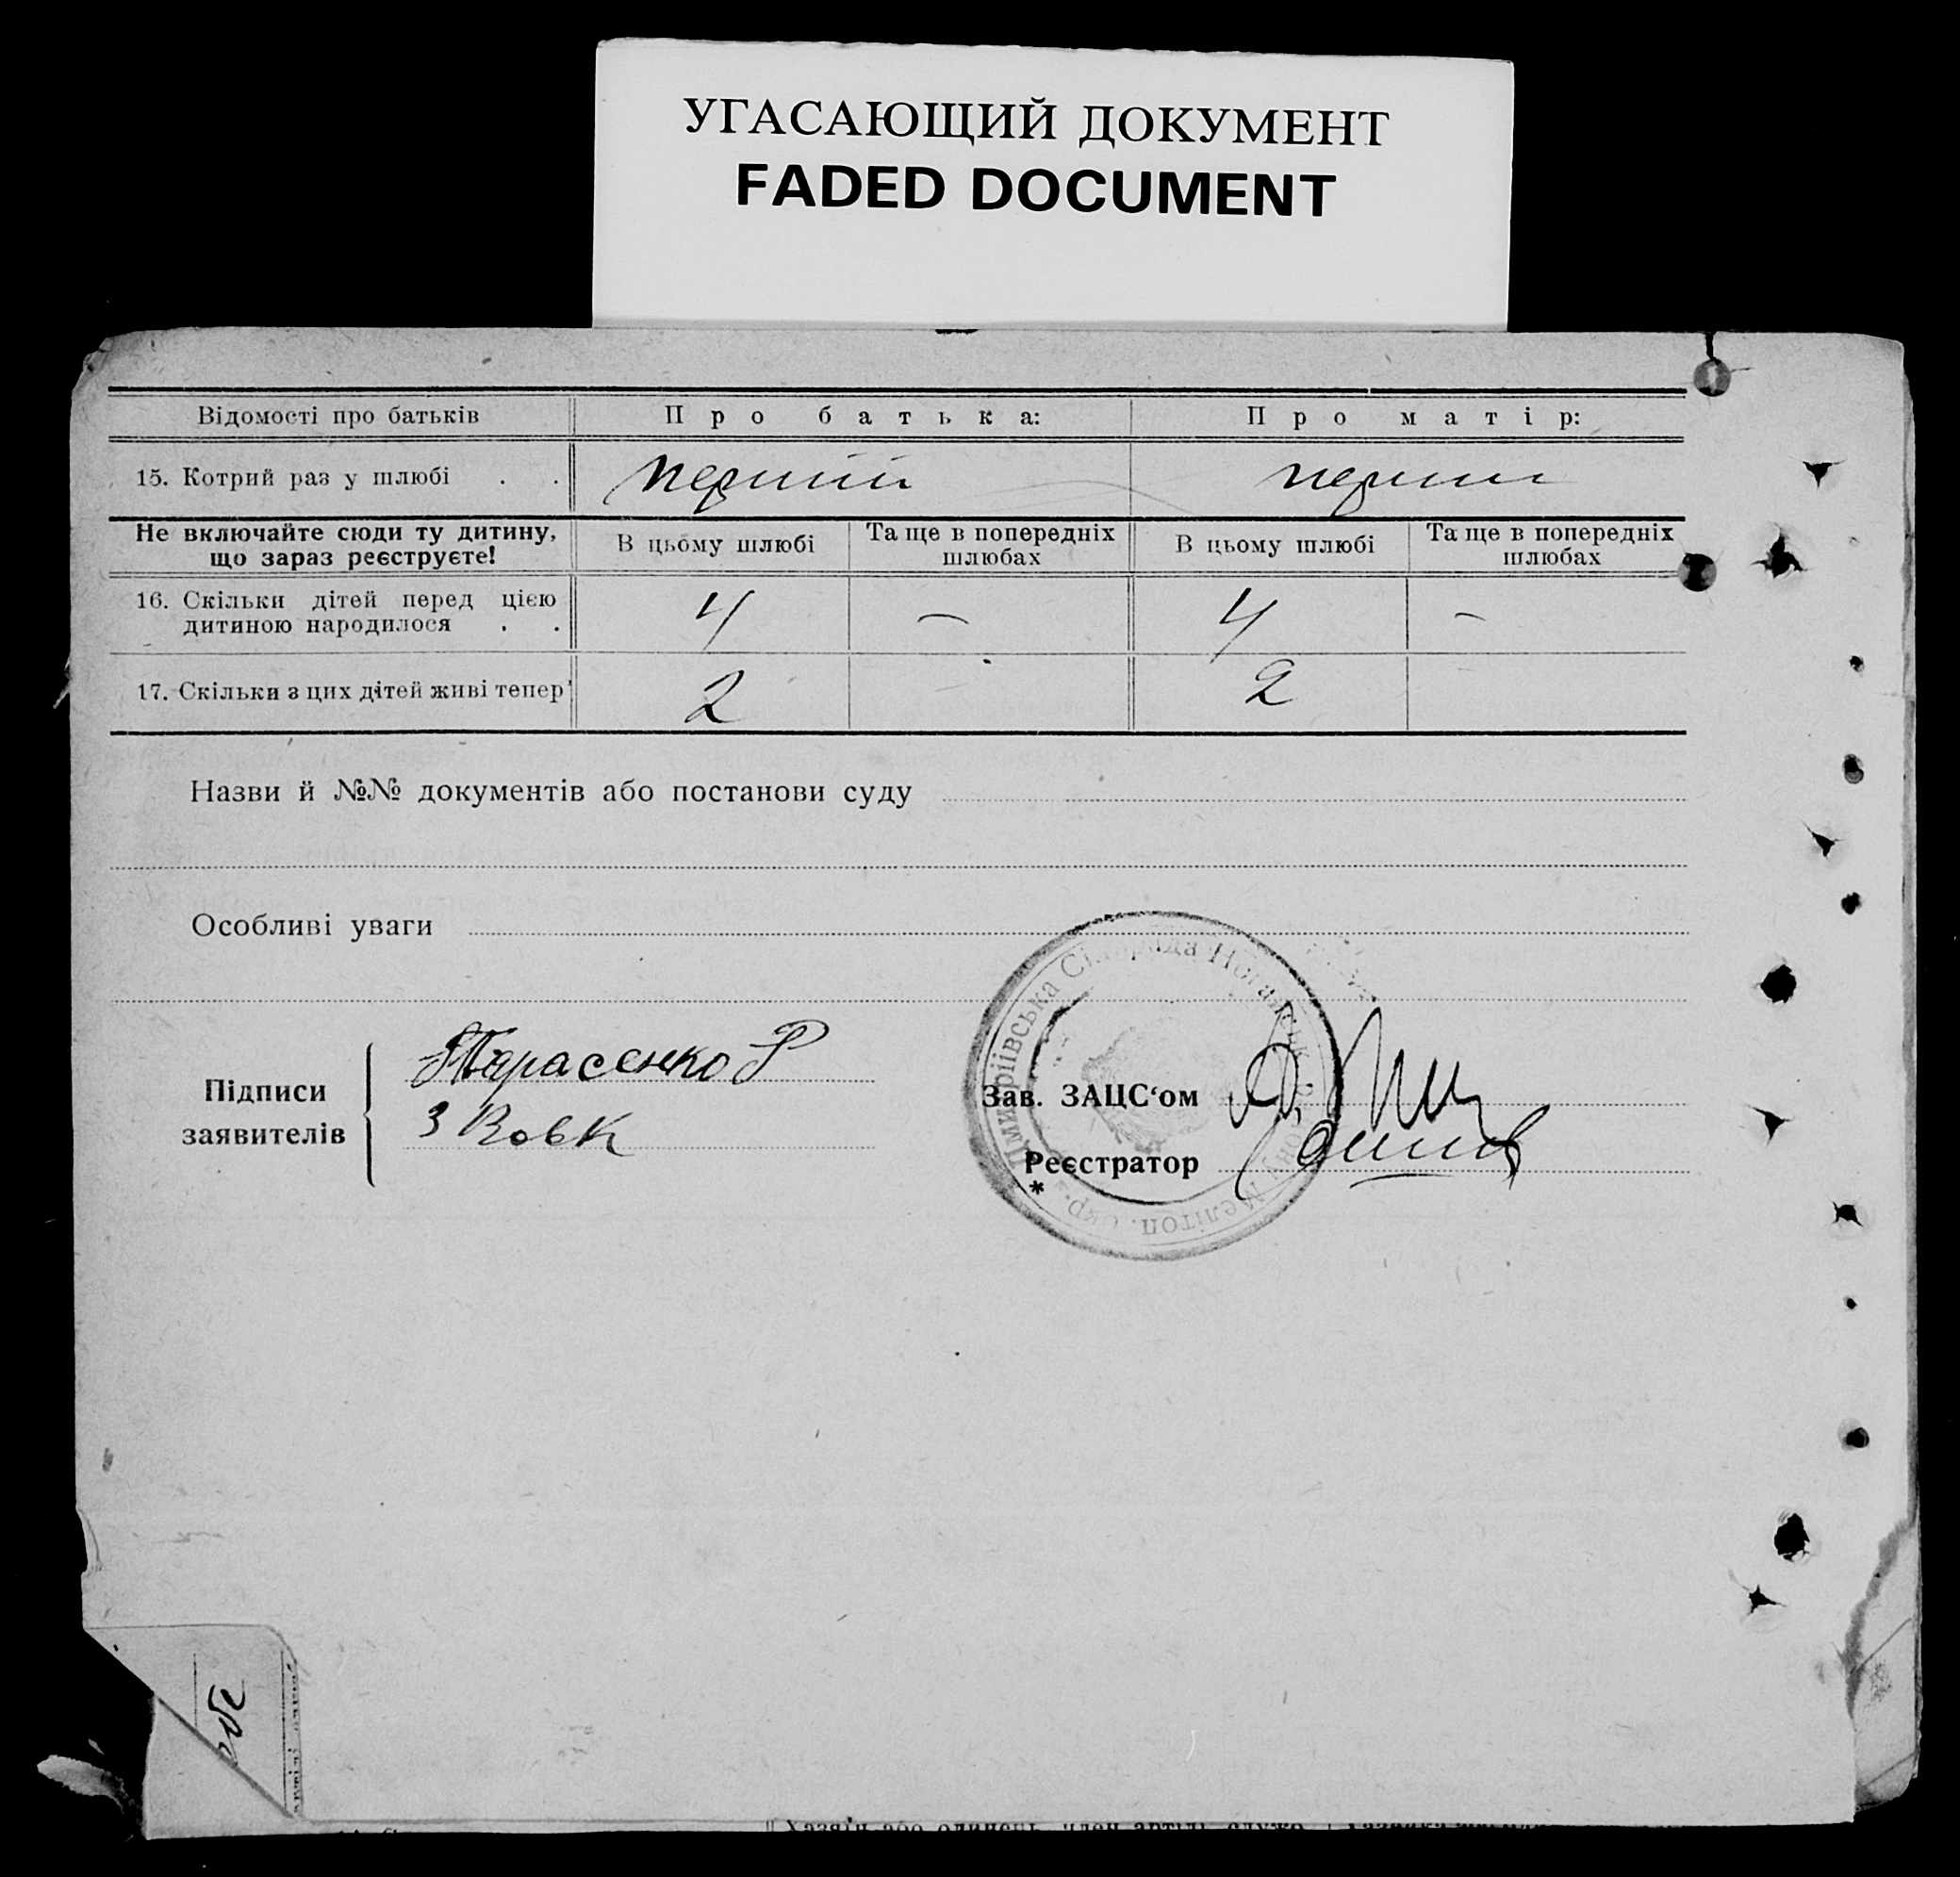 УГАСАЮЩИЙ ДОКУМЕНТ
FADED DOCUMENT
Відомості про батьків Про батька: Про матір:
15. Котрий раз у шлюбі . . перший перший
Не включайте сюди ту дитину, що зараз реєструєте! В цьому шлюбі Та ще в попередніх шлюбах В цьому шлюбі Та ще в попередніх шлюбах
16. Скільки дітей перед цією
дитиною народилося . . 4 — 4 —
17. Скільки з цих дітей живі тепер 2 2
Назви й №№ документів або постанови суду
Особливі уваги
Підписи
заявителів
Тарасенко Р
З Вовк
Зав. ЗАЦС‘ом
Реєстратор
*
Сільрада Ногайськ
Меліtоп. Окр.